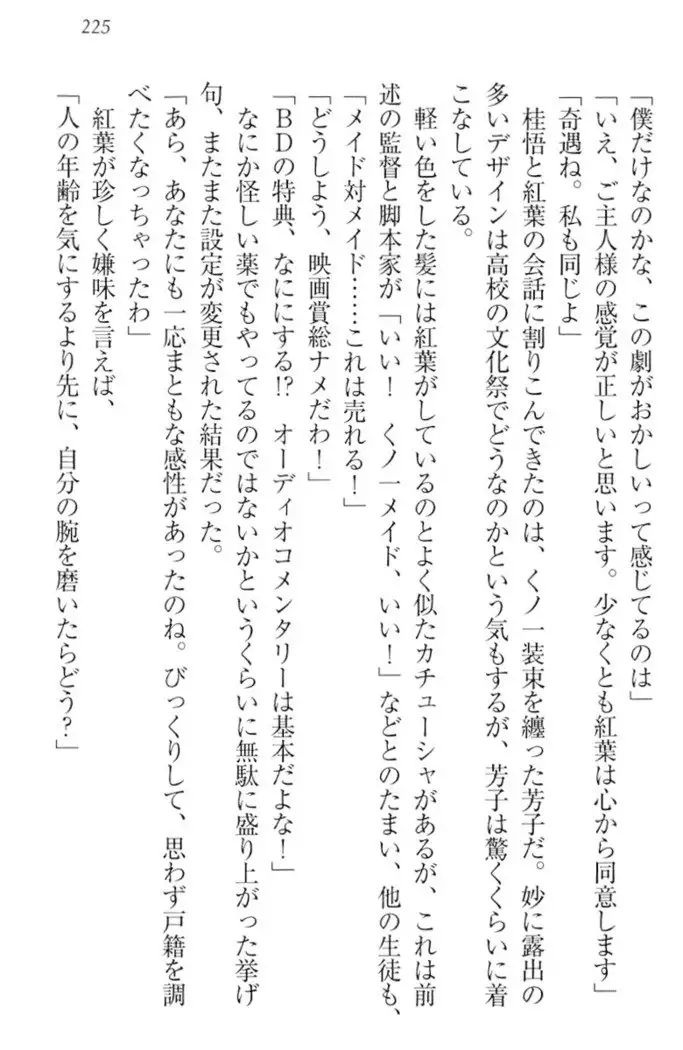 225
「僕だけなのかな、この劇がおかしいって感じてるのは」
「いえ、ご主人様の感覚が正しいと思います。少なくとも紅葉は心から同意します」
「奇遇ね。私も同じよ」
桂悟と紅葉の会話に割りこんできたのは、くノ一装束を纏った芳子だ。妙に露出の
多いデザインは高校の文化祭でどうなのかという気もするが、芳子は驚くくらいに着
こなしている。
軽い色をした髪には紅葉がしているのとよく似たカチューシャがあるが、これは前
述の監督と脚本家が「いい！　くノ一メイド、いい！」などとのたまい、他の生徒も、
「メイド対メイド……これは売れる！」
「どうしよう、映画賞総ナメだわ！」
「ＢＤの特典、なににする!?　オーディオコメンタリーは基本だよな！」
なにか怪しい薬でもやってるのではないかというくらいに無駄に盛り上がった挙げ
句、またまた設定が変更された結果だった。
「あら、あなたにも一応まともな感性があったのね。びっくりして、思わず戸籍を調
べたくなっちゃったわ」
紅葉が珍しく嫌味を言えば、
「人の年齢を気にするより先に、自分の腕を磨いたらどう？」